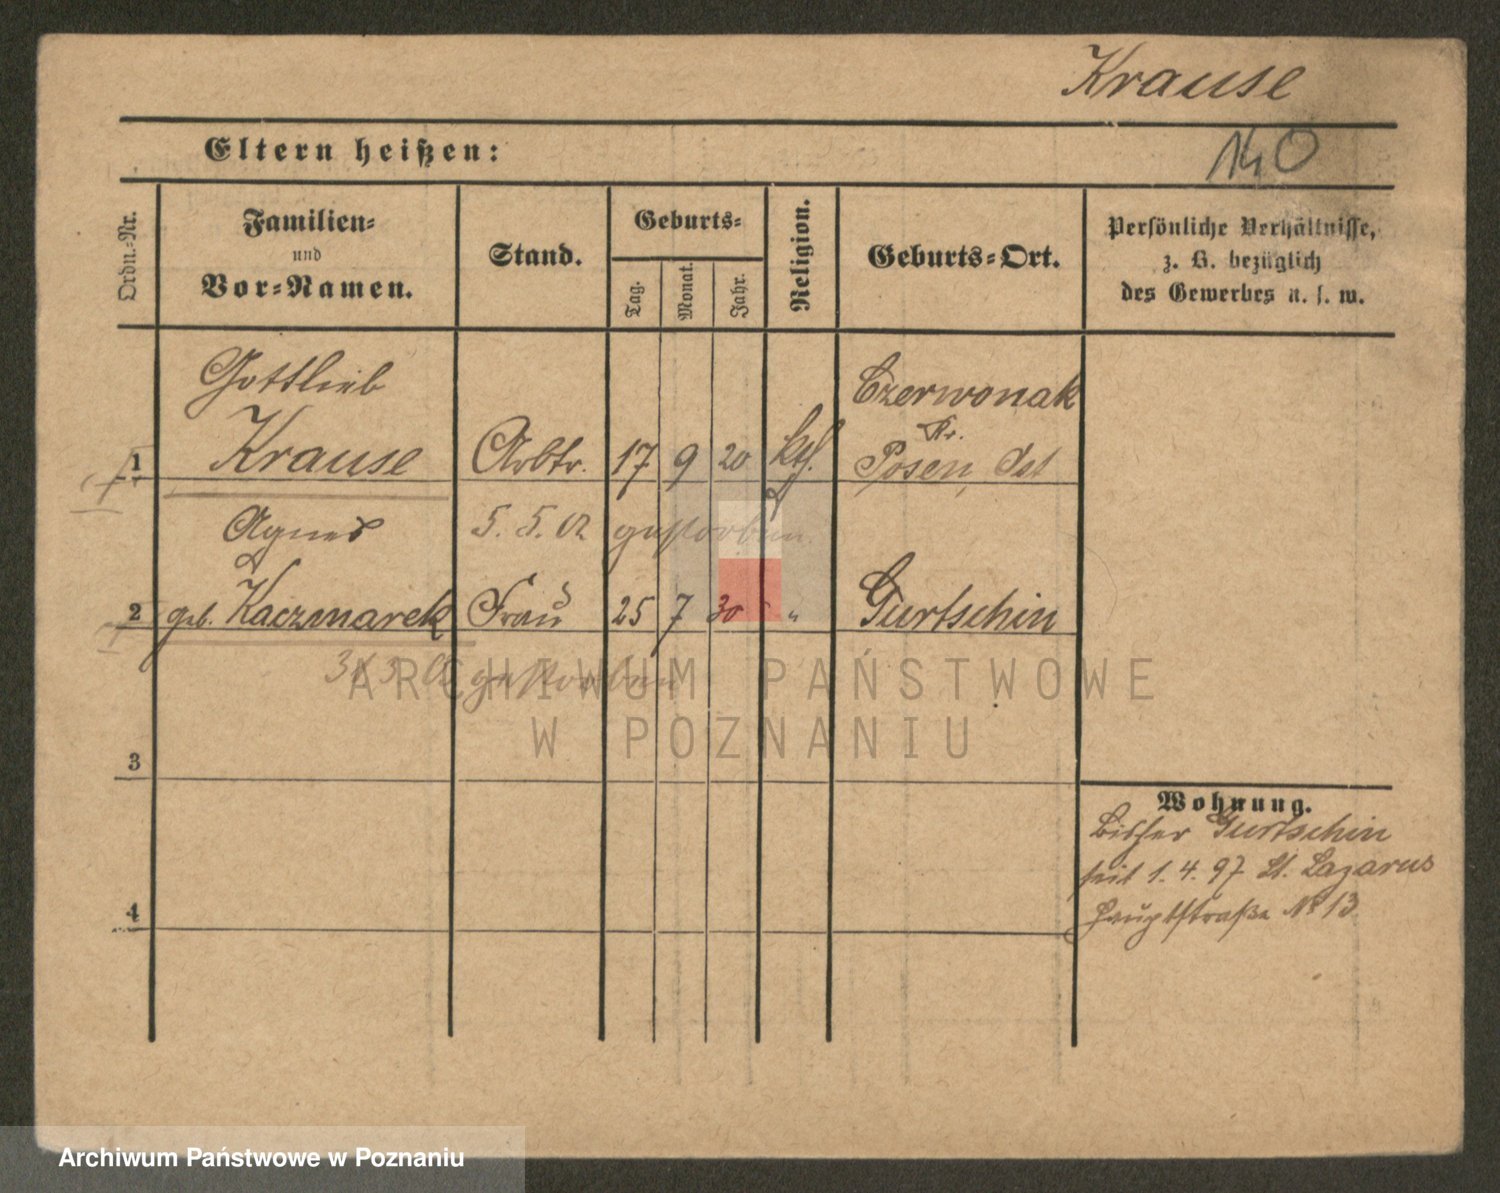 Krause
140
Eltern heißen:
Ordn.-Nr.
Familien-
und
Vor-Namen.
Stand.
Geburts-
Tag.
Monat.
Jahr.
Religion.
Geburts-Ort.
Persönliche Verhältnisse,
z. B. bezüglich
des Gewerbes u. s. w.
Gottlieb Czerwonak
Kr.
1 Krause Arbtr. 17 9 20 kth. Posen, Ost
Agnes 5. 5. 02 gestorben
2 geb. Kaczmarek Frau 25 7 30 " Gurtschin
gestorben
ARCHIWUM PAŃSTWOWE
W POZNANIU
3
Wohnung.
bisher Gurtschin
seit 1. 4. 97 St. Lazarus
Hauptstraße No 13
4
Archiwum Państwowe w Poznaniu